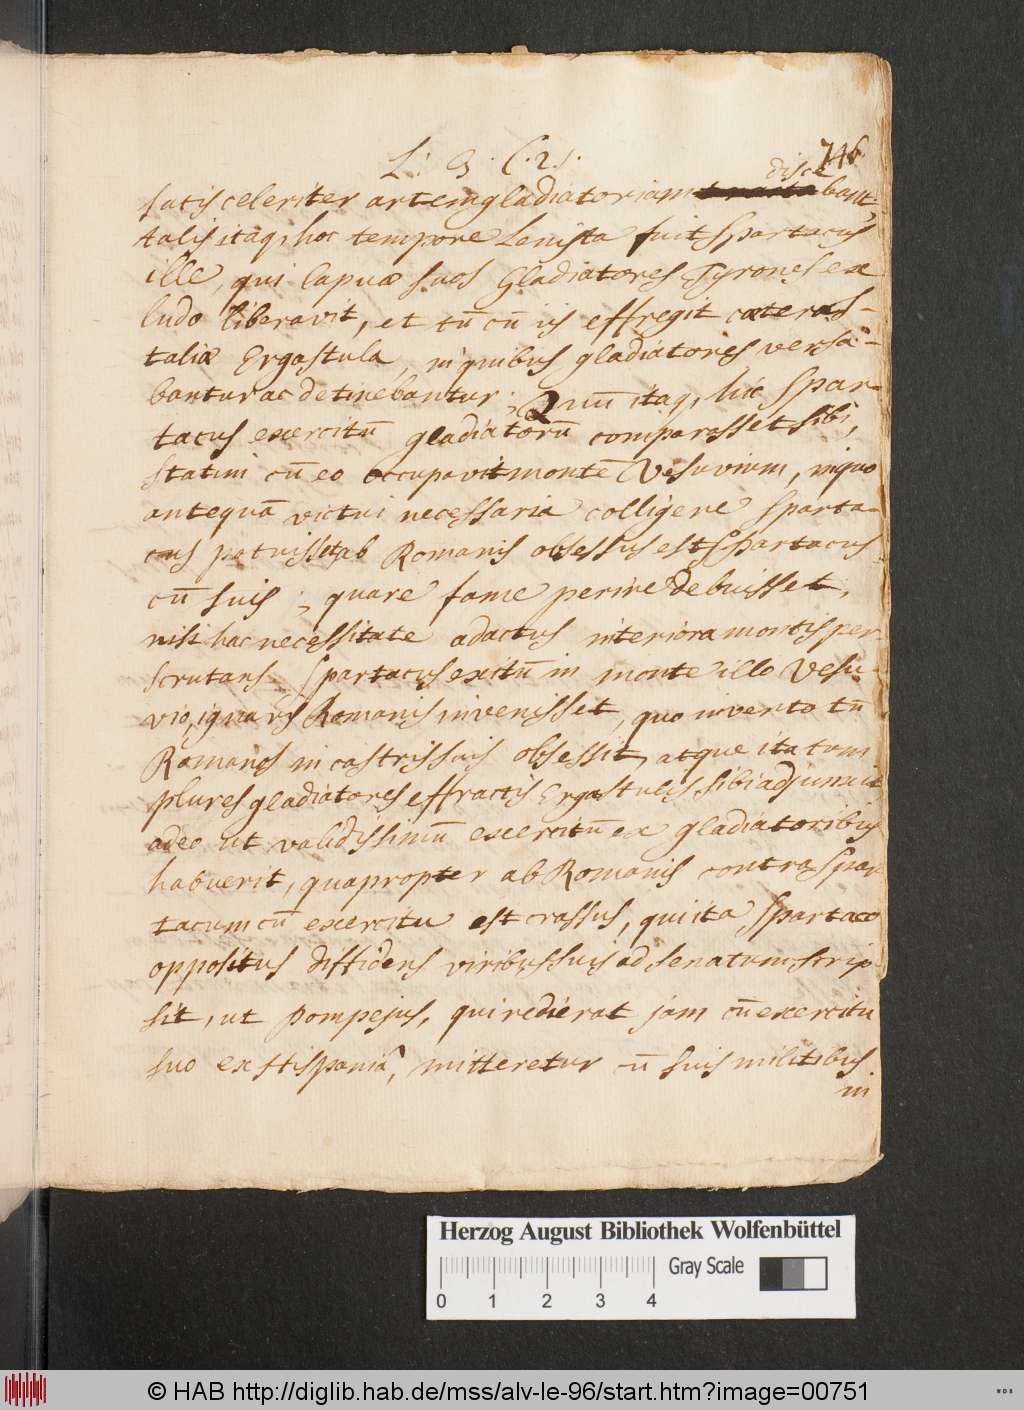 746
L: 3. C. 21.
disce
satis celeriter artem gladiatoriam tractabant,
talis itaq, hoc tempore Lenista fuit Spartacus
ille, qui Capuæ suos Gladiatores Tyrones ex
ludo liberavit, et tū cū iis effregit cæteras
taliæ Ergastula, in quibus gladiatores versa-
bantur ac detinebantur; Quū itaq, hic Spar-
tacus exercitū gladiatorū comparasset sibi,
statim cū eo occupavit montē Vesuvium, in quo
antequā victui necessaria colligere Sparta-
cus potuisset, ab Romanis obsessus est Spartacus
cū suis; quare fame perire debuisset,
nisi hac necessitate adactus interiora montis per-
scrutans Spartacus exitū in monte illo Vesu-
vio, ignaris Romanis invenisset, quo inverto tū
Romanos in castris suis obsessit, atque ita tum
plures gladiatores effractis Ergastulis sibi adjunxit
adeo ut validissimū exercitū ex gladiatoribus
habuerit, quapropter ab Romanis contra Spar-
tacum cū exercitu est crassus, qui ita Spartaco
oppositus diffidens viribus suis ad senatum scrip-
sit, ut Pompejus, qui redierat jam cū exercitu
suo ex Hispaniâ, mitteretur cū suis militibus
in
Herzog August Bibliothek Wolfenbüttel
Gray Scale
0 1 2 3 4
© HAB http://diglib.hab.de/mss/alv-le-96/start.htm?image=00751